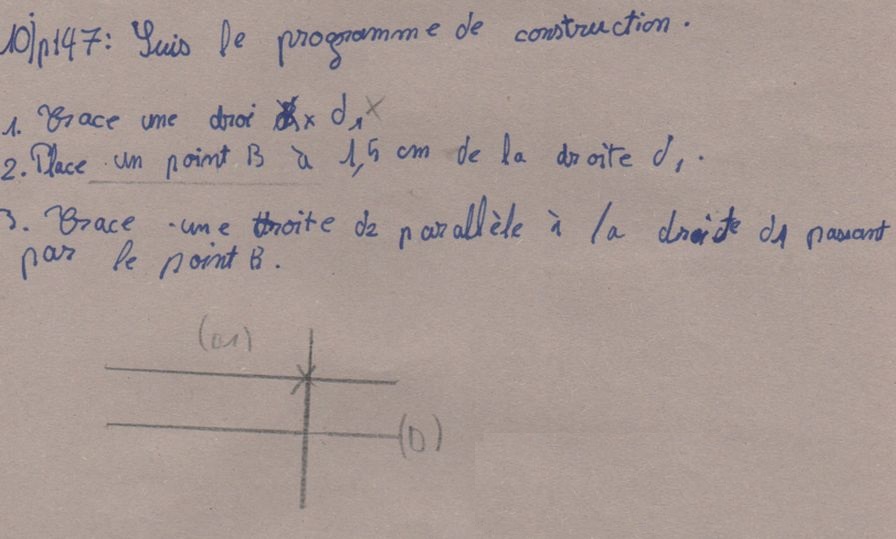 10)p147: Suis le programme de construction.
1. Trace une droi x d1 x
2. Place un point B à 1,5 cm de la droite d1.
3. Trace une droite d2 parallèle à la droite d1 passant
par le point B.
(d1)
(D)